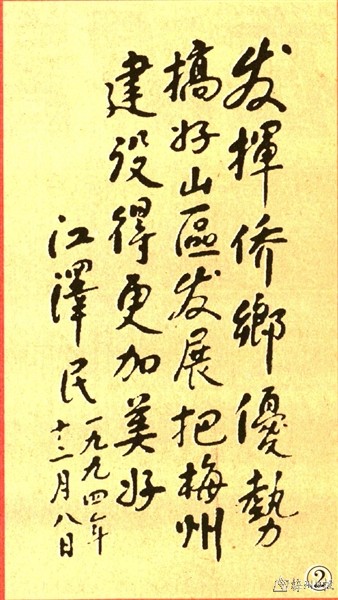 发揮侨鄉優勢
搞好山區发展把梅州
建设得更加美好
江澤民
一九九四年
十二月八日
②